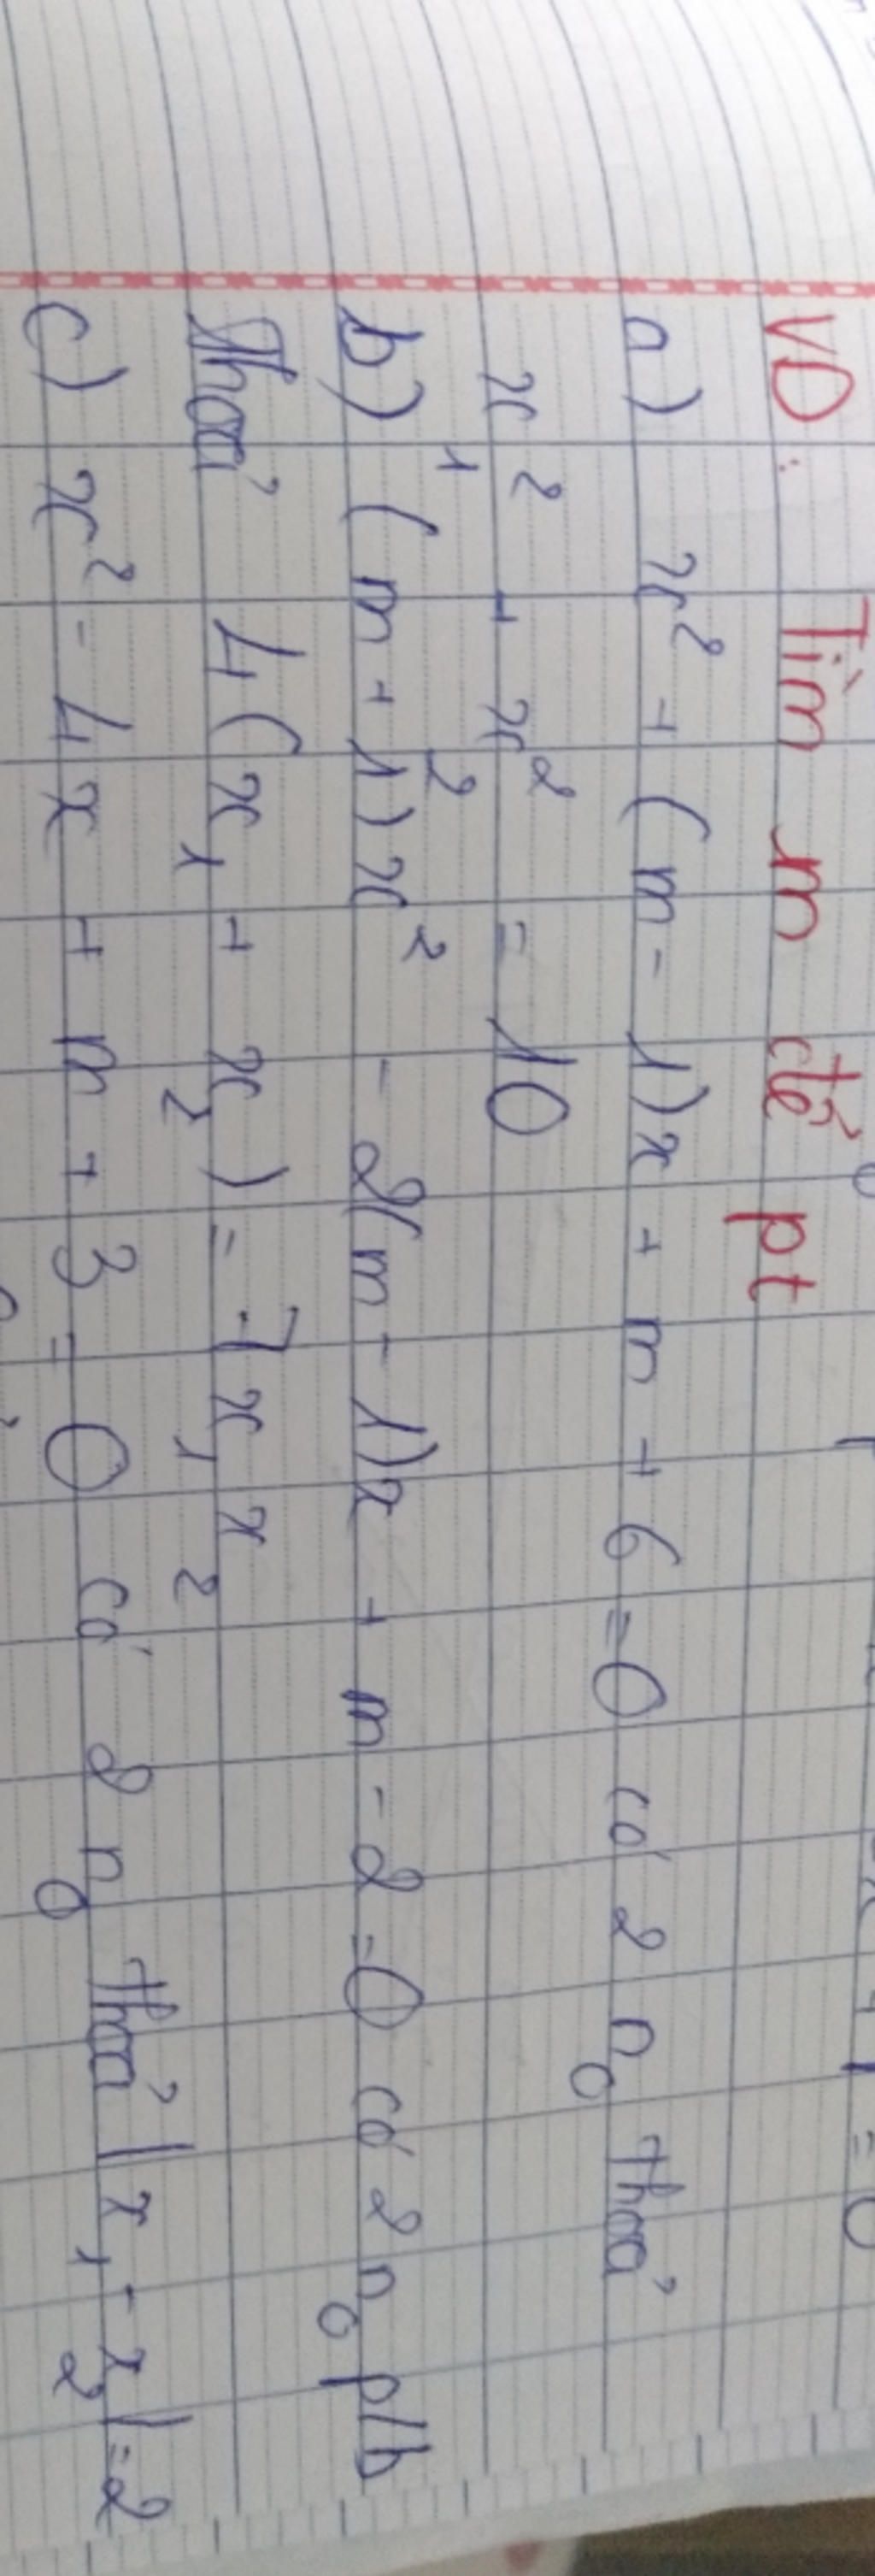 VD: Tìm m để pt
a) x² + (m - 1)x + m + 6 = 0 có 2 n₀ thoả
x₁² + x₂² = 10
b) (m + 1)x² - 2(m - 1)x + m - 2 = 0 có 2 n₀ p/b
Thoả 4(x₁ + x₂) = 7x₁x₂
c) x² - 4x + m + 3 = 0 có 2 n₀ thoả |x₁ - x₂| = 2